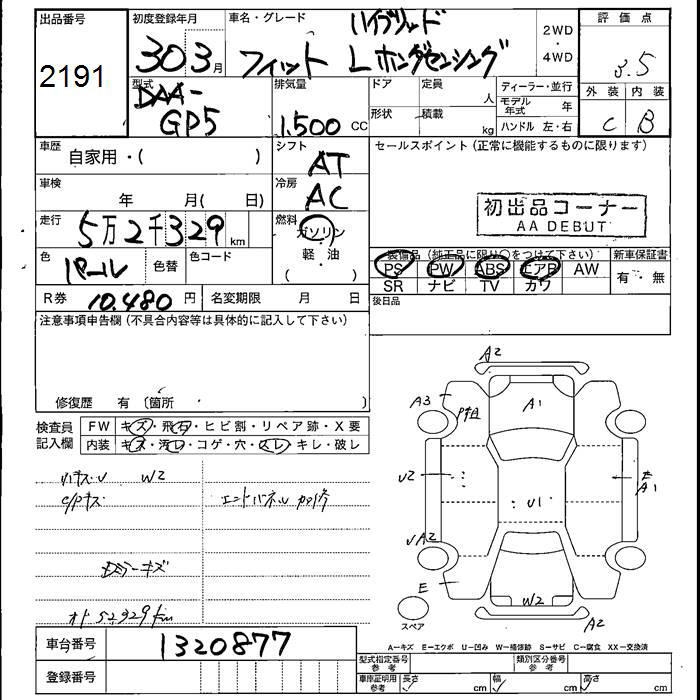 出品番号 初度登録年月 車名・グレード ハイブリッド 評価点
2191 30 3月 フィット L ホンダセンシング 2WD・4WD 3.5
型式 DAA-GP5 排気量 1.500 CC ドア 定員 人 ディーラー・並行 外装 内装
形状 積載 kg モデル年式 年 C B
ハンドル 左・右
車歴 自家用・( ) シフト AT セールスポイント (正常に機能するものに限ります)
車検 年 月( 日) 冷房 AC 初出品コーナー
AA DEBUT
走行 5万2千329 km 燃料 ガソリン
軽・油
( )
装備品 (純正品に限り〇をつけて下さい) 新車保証書
色 パール 色替 色コード PS PW ABS エアB AW 有・無
SR ナビ TV カワ
R券 10.480 円 名変期限 月 日 後日品
注意事項申告欄 (不具合内容等は具体的に記入して下さい)
修復歴 有 〔箇所 〕
検査員記入欄 FW キズ・飛石・ヒビ割・リペア跡・X要
内装 キズ・汚レ・コゲ・穴・スレ・キレ・破レ
W2
エンドパネル 加修
キズ
52329km
A2
A3
A1
U2
E
A1
U1
E
W2
A2
スペア
A－キズ E－エクボ U－凹み W－補修跡 S－サビ C－腐食 XX－交換済
車台番号 1320877
型式指定番号 参考 類別区分番号 参考
登録番号
車庫証明用 参考 長さ cm 幅 cm 高さ cm